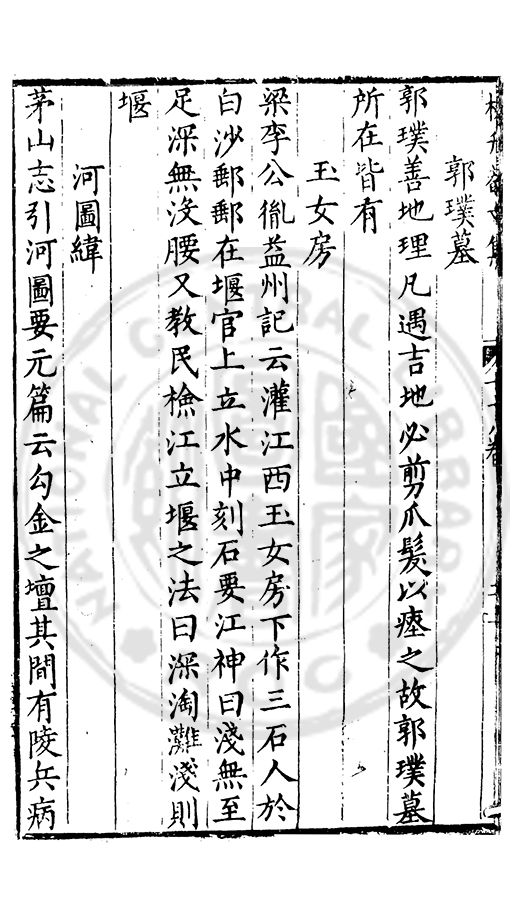 郭璞墓
郭璞善地理凡遇吉地必剪爪髮以瘞之故郭璞墓
所在皆有
玉女房
梁李公胤益州記云灌江西玉女房下作三石人於
白沙郵郵在堰官上立水中刻石要江神曰淺無至
足深無沒腰又教民檢江立堰之法曰深淘灘淺則
堰
河圖緯
茅山志引河圖要元篇云勾金之壇其間有陵兵病